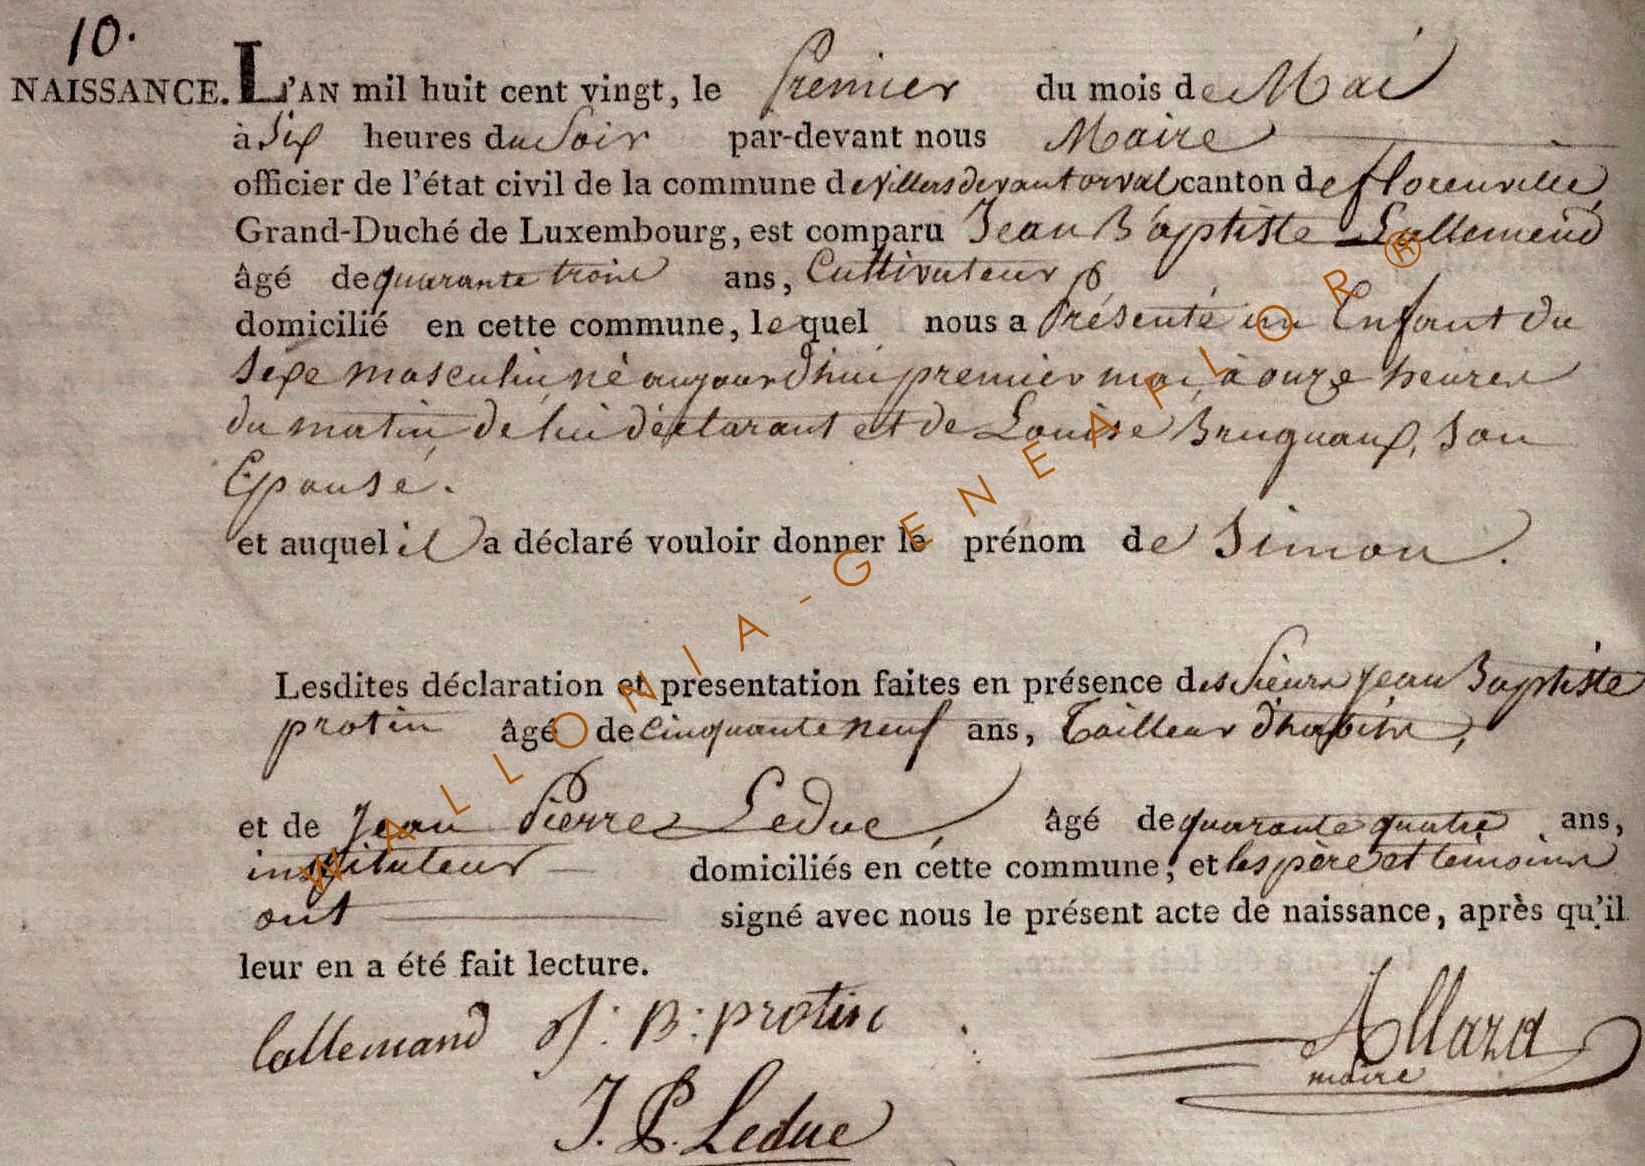 10.
NAISSANCE. L'AN mil huit cent vingt, le premier du mois de Mai
à Six heures du Soir par-devant nous Maire
officier de l'état civil de la commune de villers devant orval canton de florenville,
Grand-Duché de Luxembourg, est comparu Jean Baptiste Lallemend
âgé de quarante trois ans, Cultivateur
domicilié en cette commune, lequel nous a Présenté un Enfant du
Sexe masculin, né aujourd'hui premier mai, à onze heures
du matin, de lui déclarant et de Louise Bruquaux, Son
Epouse.
et auquel il a déclaré vouloir donner le prénom de Simon.
Lesdites déclaration et presentation faites en présence des Sieurs Jean Baptiste
protin âgé de cinquante neuf ans, Tailleur d'habits,
et de Jean Pierre Leduc, âgé de quarante quatre ans,
instituteur domiciliés en cette commune; et les père et témoins
ont signé avec nous le présent acte de naissance, après qu'il
leur en a été fait lecture.
lallemand J: B: protin
Allard
maire
J. P. Leduc
WALLONIA-GENEAFLOR®